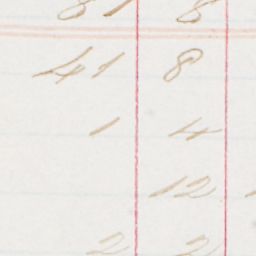 81 8
41 8
1 4
12
2 2